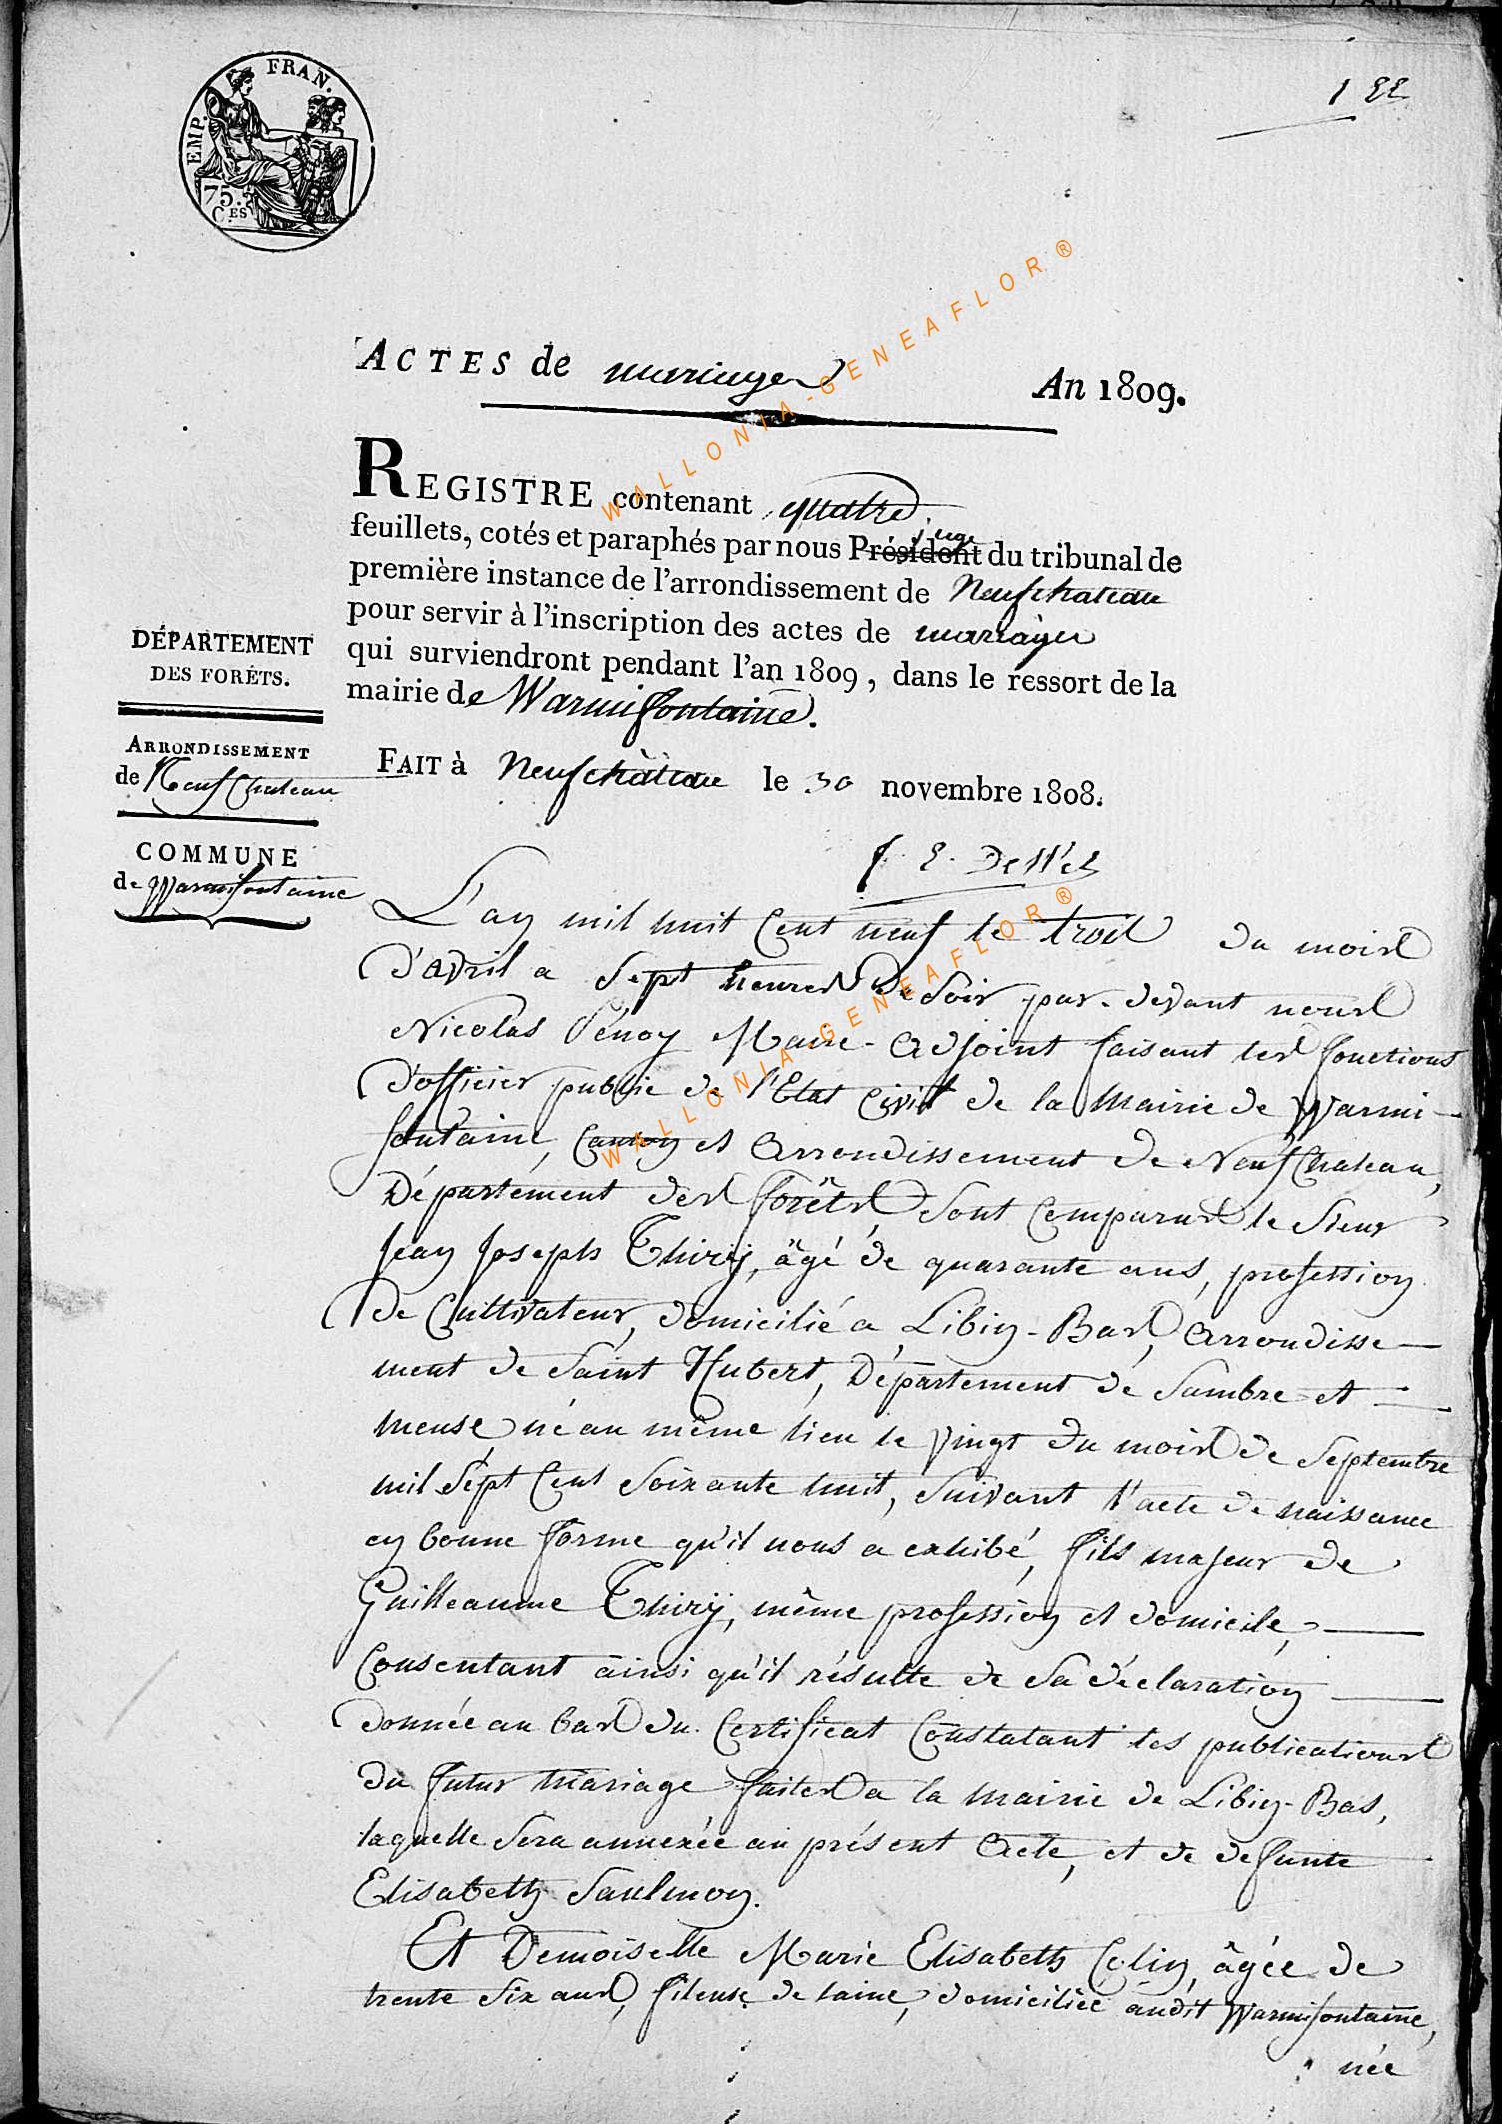 EMP. FRAN.
75.
C.ES
1
ACTES de mariages An 1809.
REGISTRE contenant quatre
feuillets, cotés et paraphés par nous Président juge du tribunal de
première instance de l'arrondissement de Neufchateau
pour servir à l'inscription des actes de mariages
qui surviendront pendant l'an 1809, dans le ressort de la
mairie de Warmifontaine.
FAIT à Neufchâteau le 30 novembre 1808.
DÉPARTEMENT
DES FORÊTS.
ARRONDISSEMENT
de Neufchateau
COMMUNE
de Warmifontaine
L'an mil huit Cent neuf le trois du mois
d'avril a Sept heures du Soir par-devant nous
Nicolas Penoy Maire-adjoint faisant les fonctions
d'officier public de l'Etat Civil de la Mairie de Warmi-
fontaine, Canton et arrondissement de Neufchateau,
Département des forêts Sont Comparus le Sieur
Jean Joseph Thirÿ, âgé de quarante ans, profession
de Cultivateur, domicilié a Libin-Bas, arrondisse-
ment de Saint Hubert, Département de Sambre et
meuse, né au même lieu le vingt du mois de Septembre
mil Sept Cent Soixante huit, Suivant l'acte de naissance
en bonne forme qu'il nous a exhibé, fils majeur de
Guilleaume Thirÿ, même profession et domicile,
Consentant ainsi qu'il résulte de Sa déclaration
donnée au bas du Certificat Constatant les publications
du futur mariage faites a la mairie de Libin-Bas,
laquelle Sera annexée au présent acte, et de defunte
Elisabeth Saulmon.
Et Demoiselle Marie Elisabeth Colin, âgée de
trente Six ans, fileuse de laine, domiciliée audit Warmifontaine,
née
WALLONIA-GENEAFLOR®
WALLONIA-GENEAFLOR®